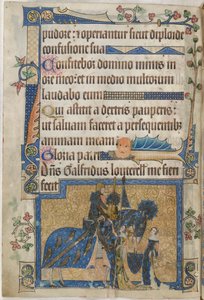 pudore: et operiantur sicut diploide
confusione sua
Confitebor domino nimis in
ore meo: et in medio multorum
laudabo eum
Qui astitit a dextris pauperis:
ut salvam faceret a persequentibus
animam meam
Gloria patri
Dñs Galfridus louterell me fieri
fecit